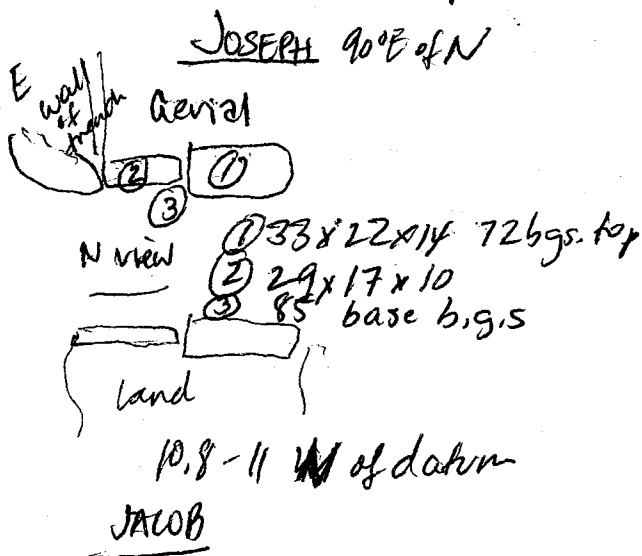 JOSEPH 90°E of N
E wall of trench
Aerial
② ①
③
N view
① 33 x 22 x 14 72 bgs. top
② 29 x 17 x 10
③ 85 base b.g.s
land
10.8 - 11 W of datum
JACOB